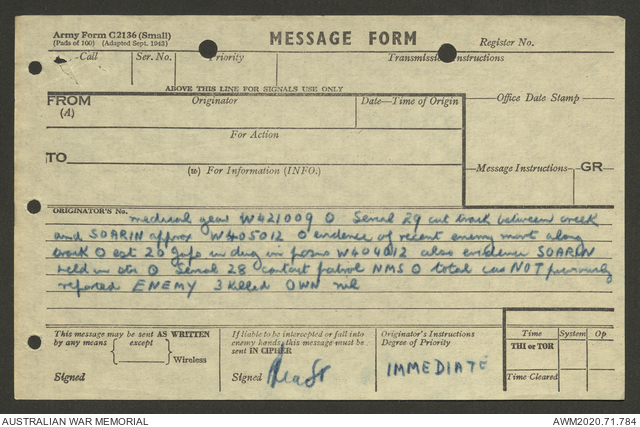 Army Form C2136 (Small)
(Pads of 100) (Adapted Sept. 1943)
MESSAGE FORM
Register No.
Call
Ser. No.
Priority
Transmission Instructions
ABOVE THIS LINE FOR SIGNALS USE ONLY
FROM
(A)
Originator
Date—Time of Origin
Office Date Stamp
For Action
TO
(w) For Information (INFO.)
Message Instructions
GR
ORIGINATOR'S No.
medical gear W421009 O Serial 29 cut track between creek
and SOARIN approx W405012 O evidence of recent enemy mvt along
track O est 20 Japs in dug in posns W404012 also evidence SOARIN
held in str O Serial 28 contact patrol NMS O total cas NOT previously
reported ENEMY 3 killed OWN nil
This message may be sent AS WRITTEN
by any means except
Wireless
Signed
If liable to be intercepted or fall into
enemy hands, this message must be
sent IN CIPHER
Signed
Originator's Instructions
Degree of Priority
IMMEDIATE
Time
System
Op
THI or TOR
Time Cleared
AUSTRALIAN WAR MEMORIAL
AWM2020.71.784